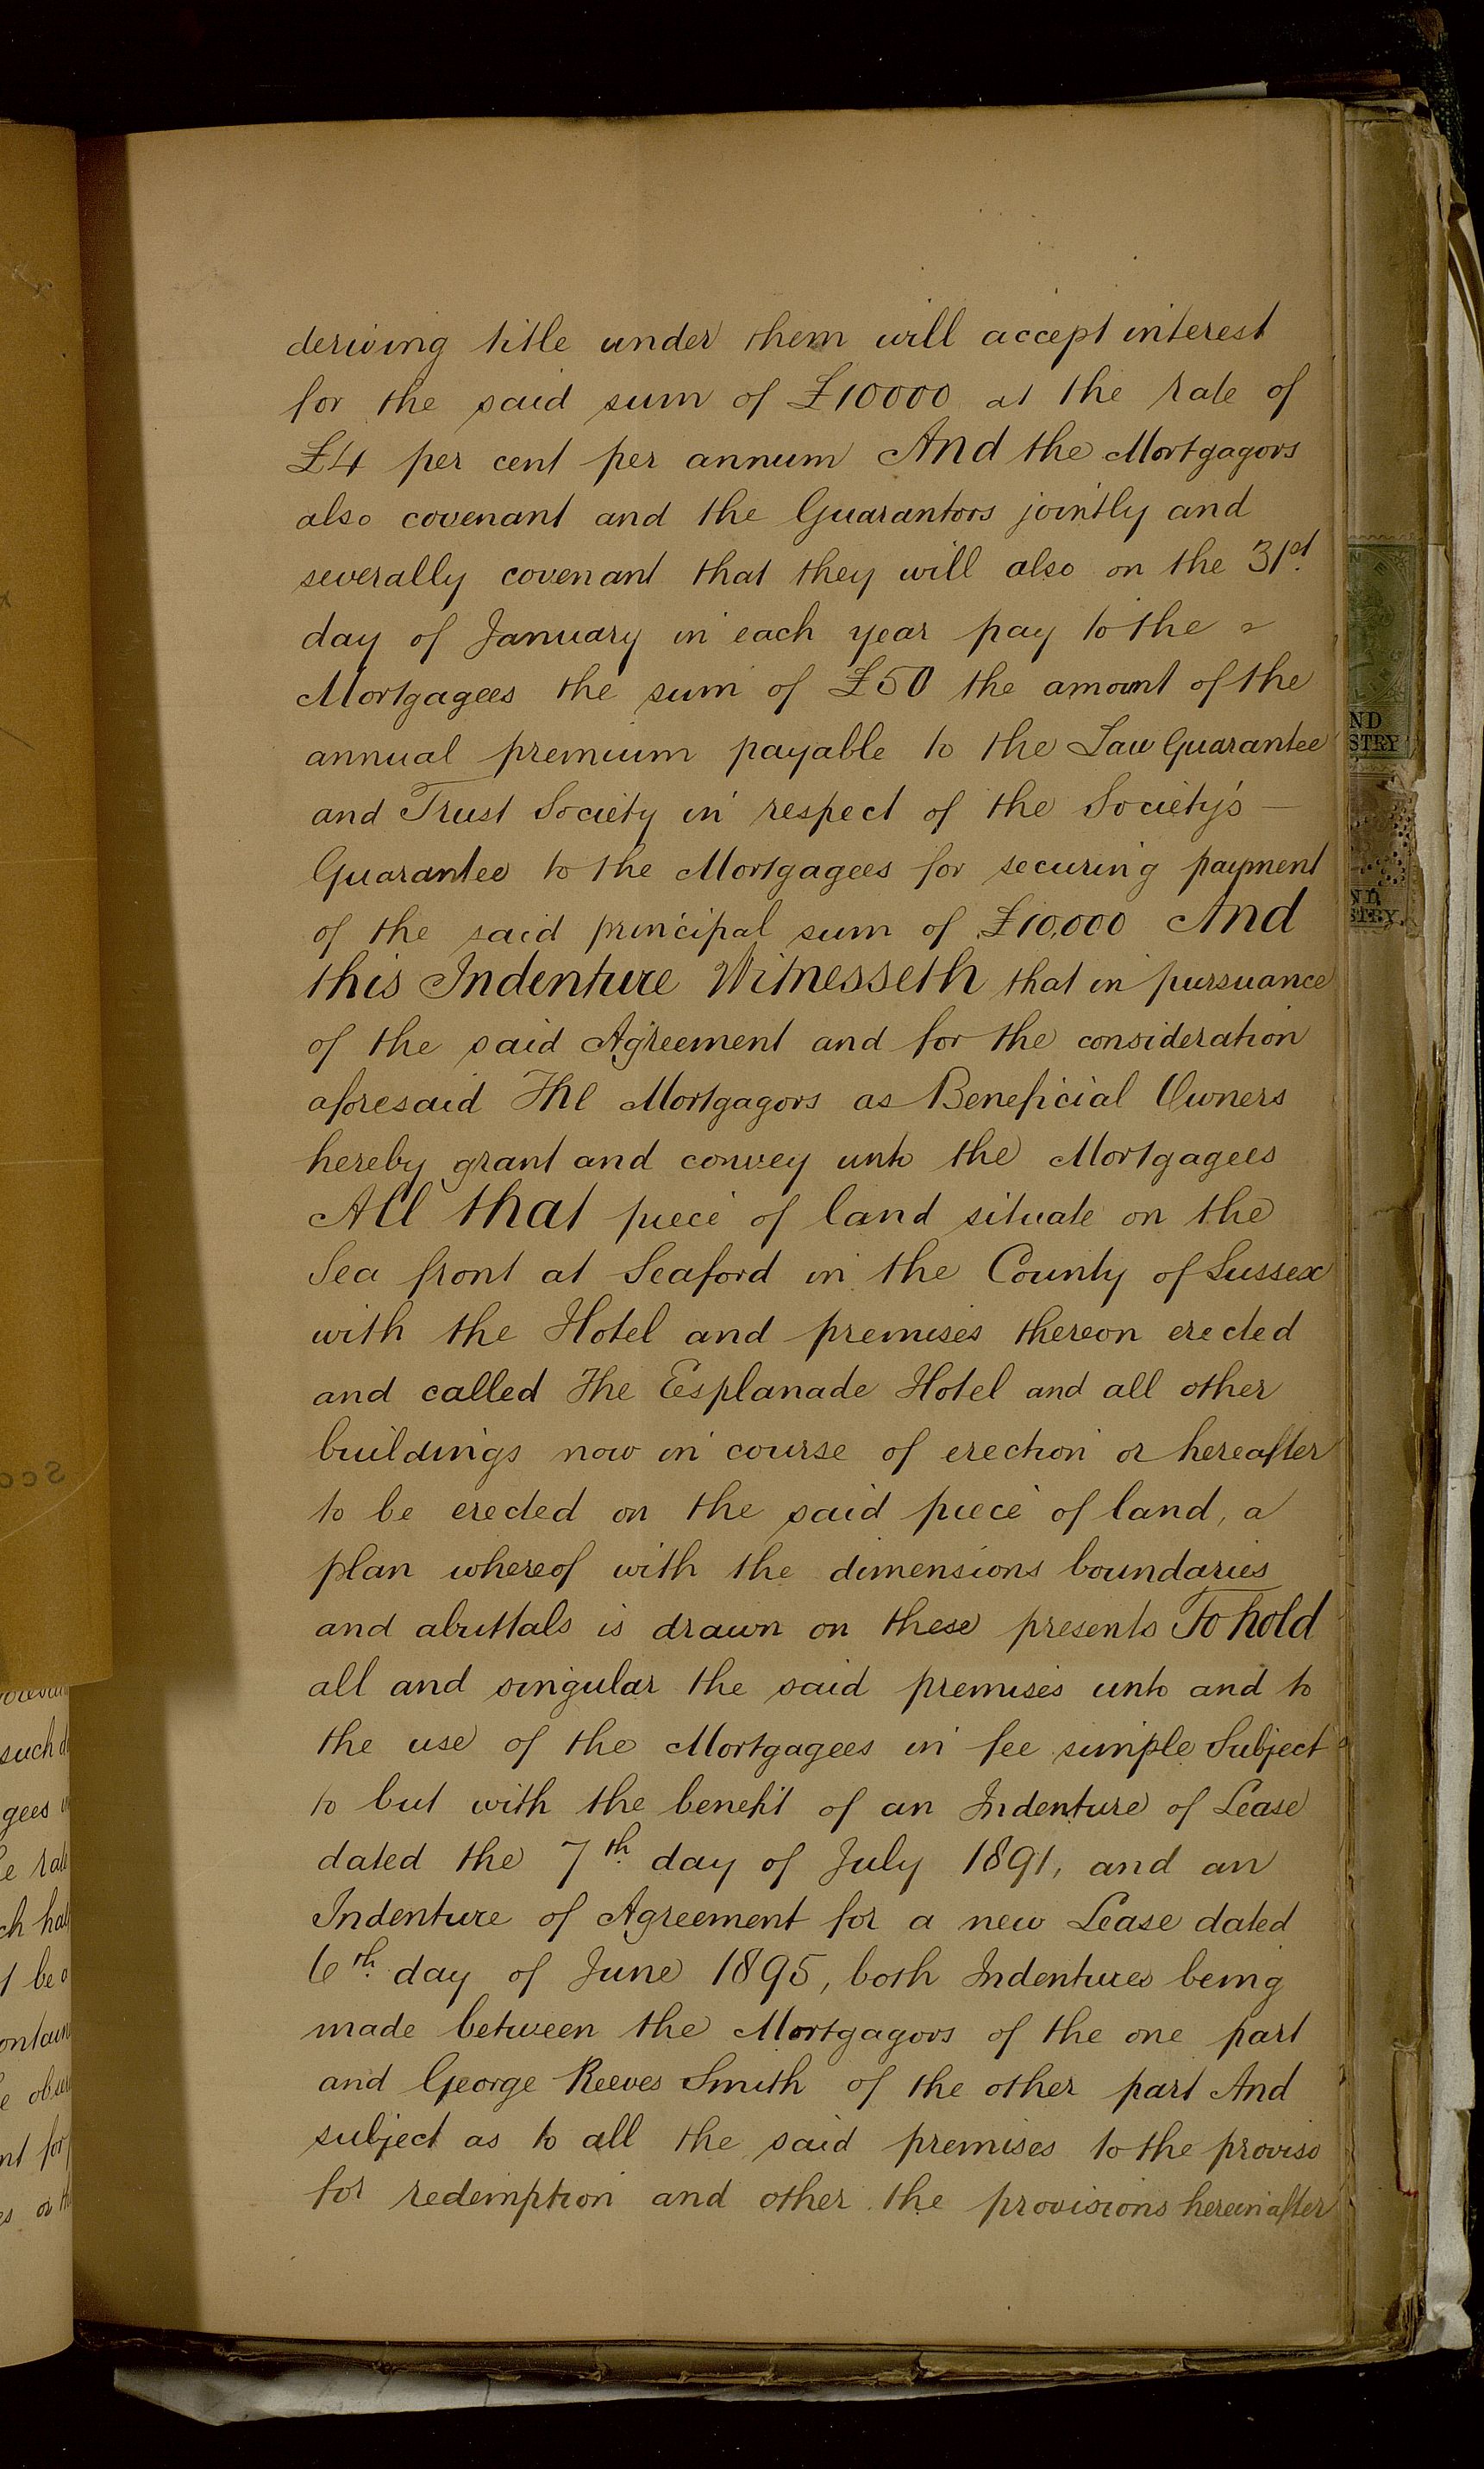 deriving title under them will accept interest
for the said sum of £10000 at the rate of
£4 per cent per annum And the Mortgagors
also covenant and the Guarantors jointly and
severally covenant that they will also on the 31st.
day of January in each year pay to the
Mortgagees the sum of £50 the amount of the
annual premium payable to the Law Guarantee
and Trust Society in respect of the Society's —
Guarantee to the Mortgagees for securing payment
of the said principal sum of £10,000 And
this Indenture Witnesseth that in pursuance
of the said Agreement and for the consideration
aforesaid The Mortgagors as Beneficial Owners
hereby grant and convey unto the Mortgagees
All that piece of land situate on the
Sea front at Seaford in the County of Sussex
with the Hotel and premises thereon erected
and called The Esplanade Hotel and all other
buildings now in course of erection or hereafter
to be erected on the said piece of land, a
plan whereof with the dimensions boundaries
and abuttals is drawn on these presents To hold
all and singular the said premises unto and to
the use of the Mortgagees in fee simple Subject
to but with the benefit of an Indenture of Lease
dated the 7th. day of July 1891, and an
Indenture of Agreement for a new Lease dated
6th. day of June 1895, both Indentures being
made between the Mortgagors of the one part
and George Reeves Smith of the other part And
subject as to all the said premises to the proviso
for redemption and other the provisions hereinafter
such
gees
ND
STRY
STRY.